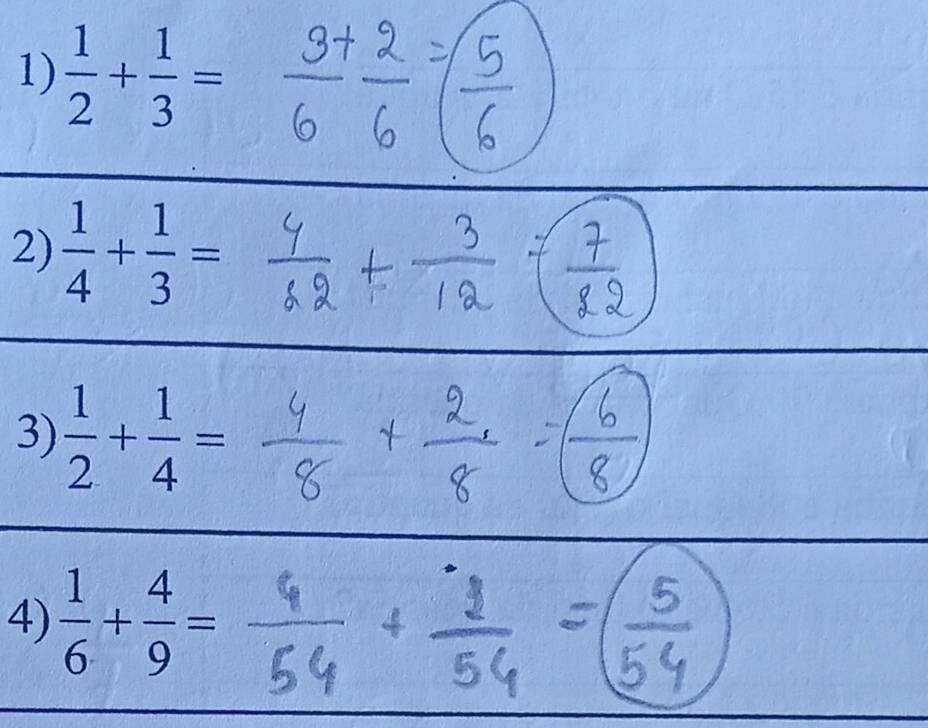 1) 1/2 + 1/3 = 3/6 + 2/6 = 5/6
2) 1/4 + 1/3 = 4/12 + 3/12 = 7/12
3) 1/2 + 1/4 = 4/8 + 2/8 = 6/8
4) 1/6 + 4/9 = 4/54 + 1/54 = 5/54